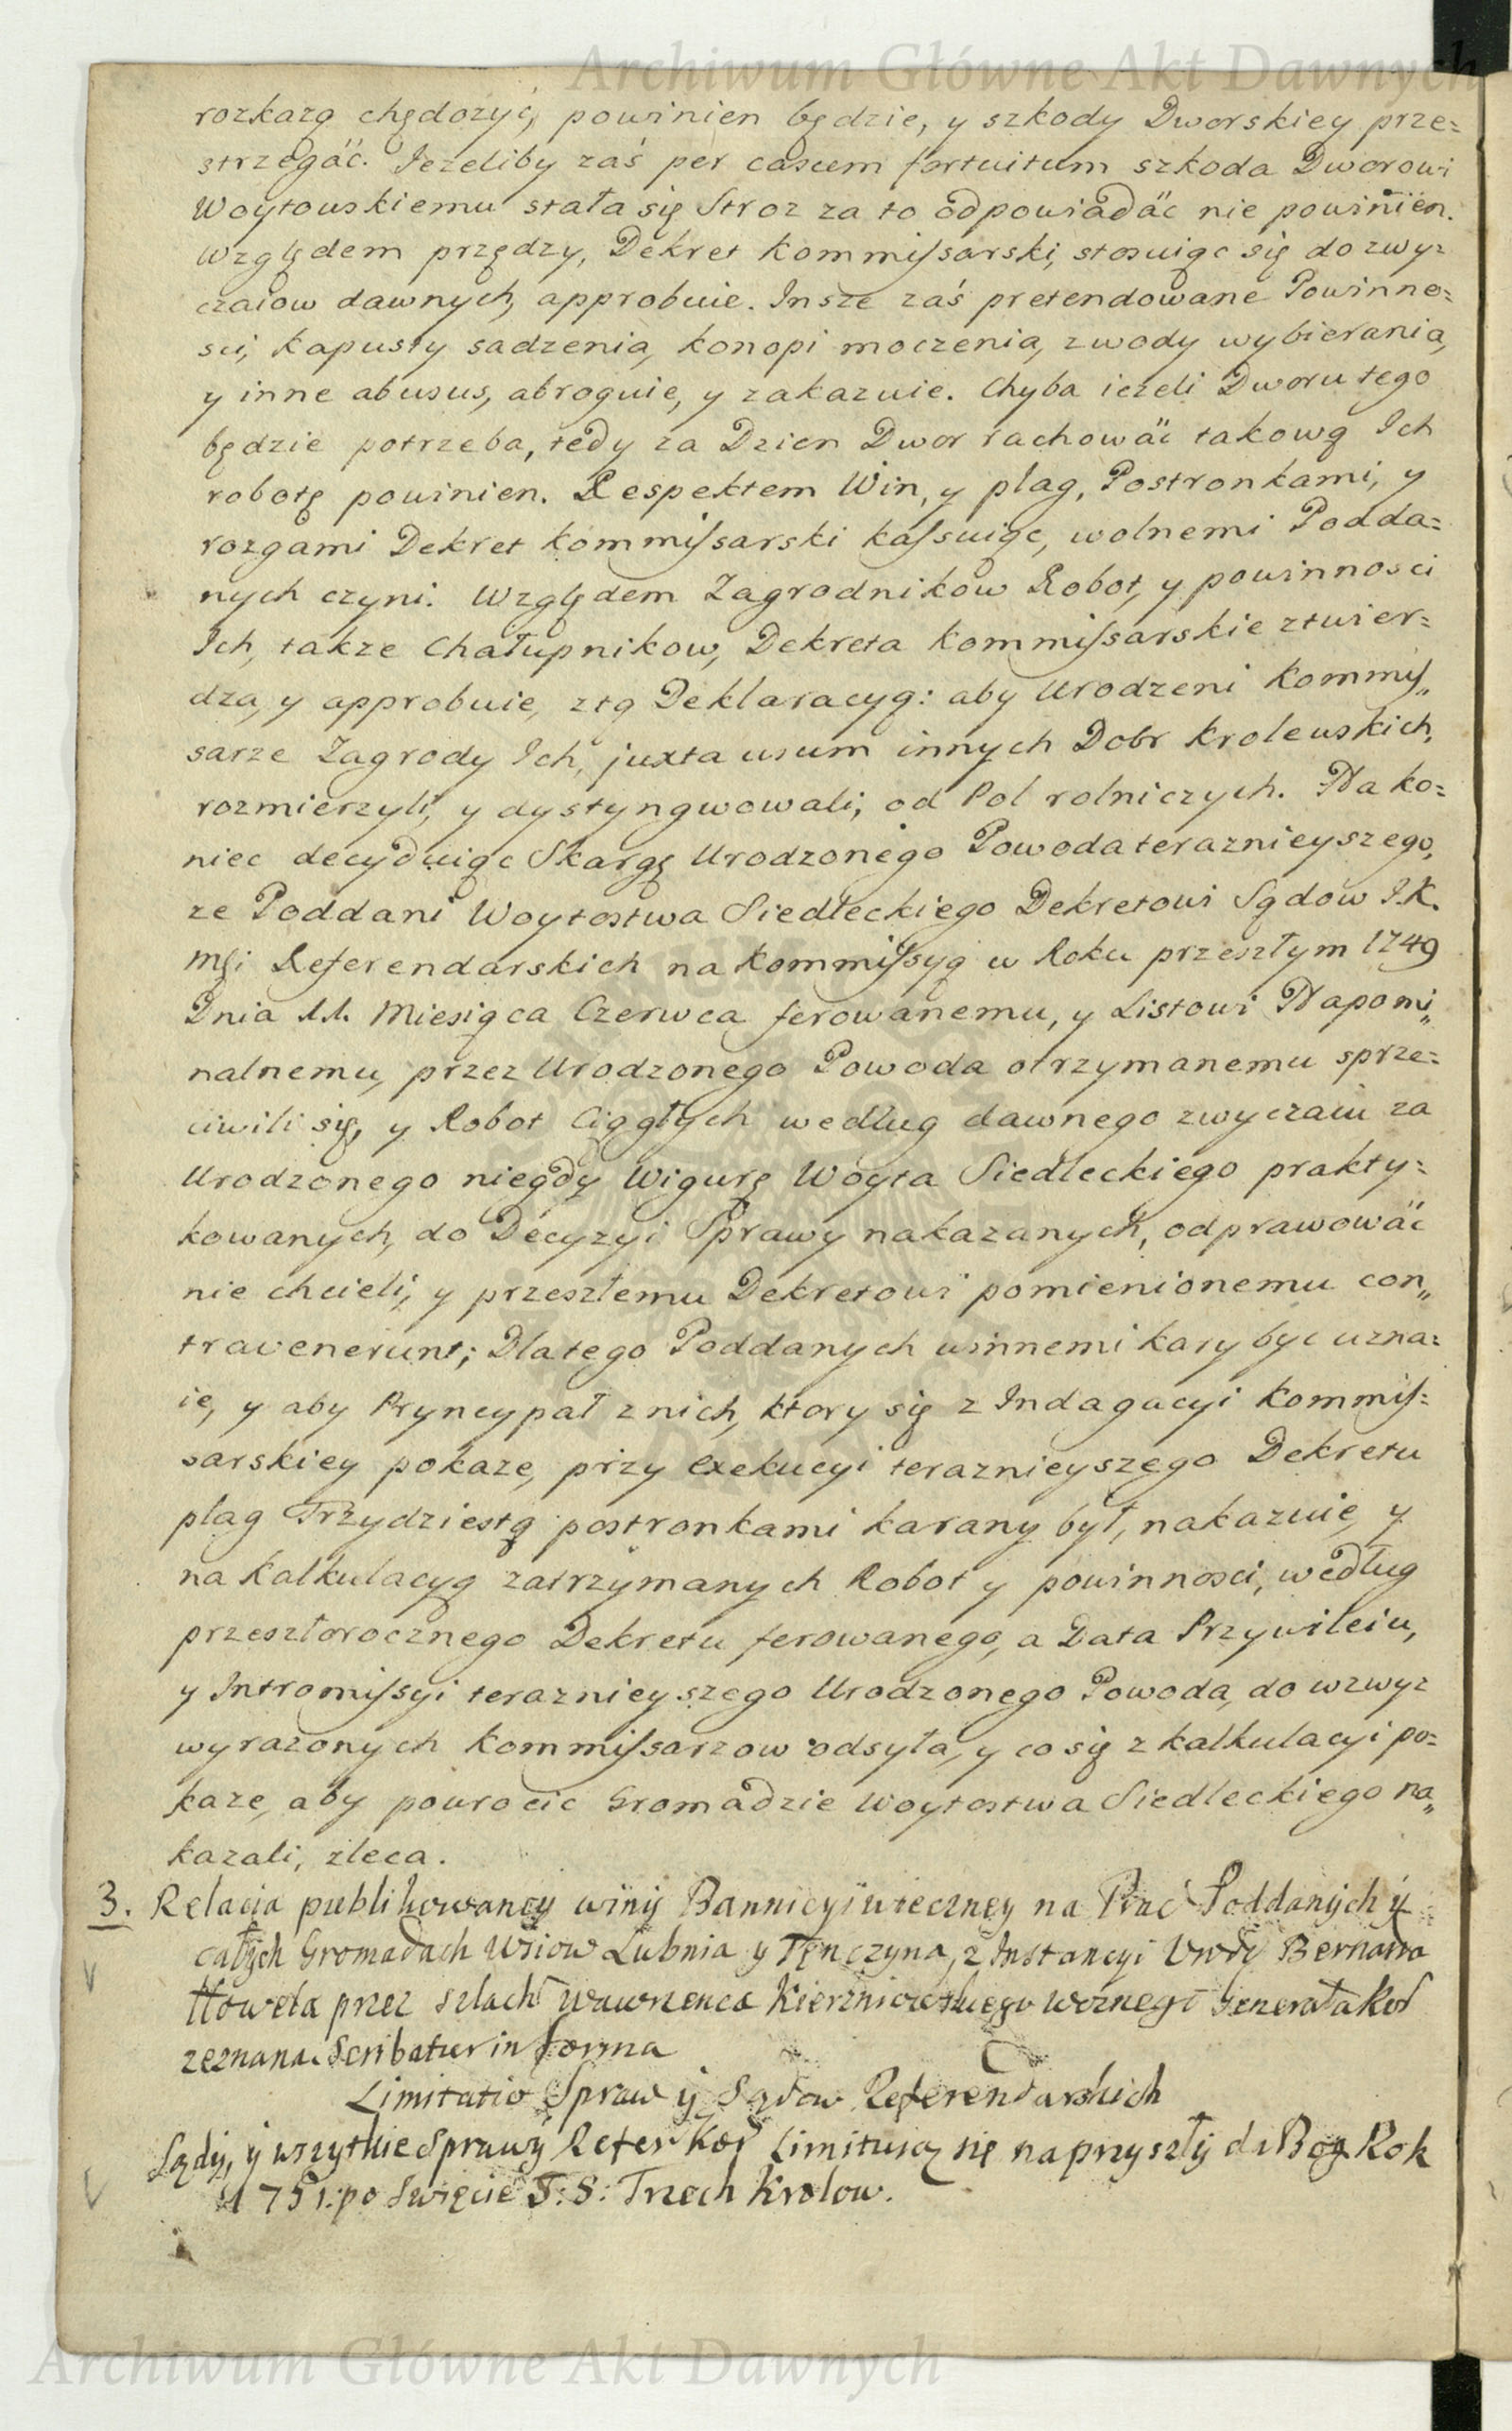 Archiwum Główne Akt Dawnych
rozkażą chędożyć, powinien będzie, y szkody Dworskiey prze=
strzegáć. Jezeliby zaś per casum fortuitum szkoda Dworowi
Woytowskiemu stała się Stroz za to odpowiadáć nie powinien.
Względem przędzy, Dekret Kommissarski, stosuiąc się do zwy=
czaiow dawnych, approbuie. Insze zaś pretendowane Powinno=
sci, Kapusty sadzenia, konopi moczenia, z wody wybierania,
y inne abusus, abroguie, y zakazuie. Chyba iezeli Dworu tego
będzie potrzeba, tedy za Dzien Dwor rachowáć takową Ich
robotę powinien. Respektem Win, y plag, Postronkami, y
rozgami Dekret Kommissarski kassuiąc, wolnemi Podda=
nych czyni. Względem Zagrodnikow Robot, y powinnosci
Ich, takze Chałupnikow, Dekreta Kommissarskie ztwier=
dza, y approbuie, z tą Deklaracyą: aby Urodzeni Kommis„
sarze Zagrody Ich, juxta usum innych Dobr Krolewskich,
rozmierzyli, y dystyngwowali, od Pol rolniczych. Na ko=
niec decyduiąc Skargę Urodzonego Powoda teraznieyszego,
ze Poddani Woytostwa Siedleckiego Dekretowi Sądow J.K.
Mści Referendarskich na Kommissyą w Roku przeszłym 1749
Dnia 11. Miesiąca Czerwca ferowanemu, y Listowi Napomi„
nalnemu, przez Urodzonego Powoda otrzymanemu sprze=
ciwili się, y Robot Ciągłych według dawnego zwyczaiu za
Urodzonego niegdy Wigurę Woyta Siedleckiego prakty=
kowanych, do Decyzyi Sprawy nakazanych, odprawowáć
nie chcieli, y przeszłemu Dekretowi pomienionemu con„
travenerunt; Dlatego Poddanych winnemi kary byc uzna=
ie, y aby Pryncypał z nich, ktory się z Indagacyi Kommis=
sarskiey pokaze, przy Exekucyi teraznieyszego Dekretu
plag Trzydziestą postronkami karany był, nakazuie, y
na Kalkulacyą zatrzymanych Robot y powinnosci, według
przeszłorocznego Dekretu ferowanego, a Data Przywileiu,
y Intromissyi teraznieyszego Urodzonego Powoda, do wzwyz
wyrazonych Kommissarzow odsyła, y co się z kalkulacyi po=
kaze, aby powrocic Gromadzie Woytostwa Siedleckiego na„
kazali, zleca.
3. Relacia publikowaney winy Bannicyi wieczney na Prac Poddanych y
całych Gromadach Wsiow Lubnia y Tęnczyna, z Instancyi Urodz Bernarda
Howela przez szlach Wawrzenca Kierzniowskiego woznego Generała Kor
zeznana. Scribatur in forma
Limitatio Spraw y Sądow Referendarskich
Sądy, y wszytkie Sprawy Refer Kor Limituią się na przyszły da Bog Rok
1751. po Swięcie S: S: Trzech Krolow.
Archiwum Główne Akt Dawnych